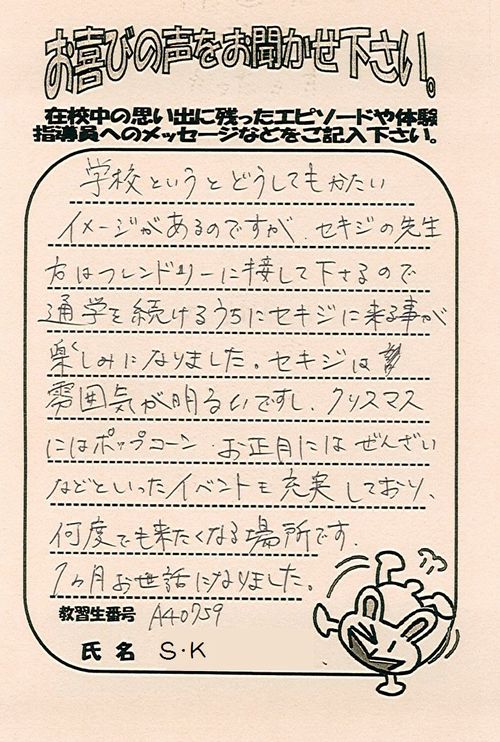 お喜びの声をお聞かせ下さい。
在校中の思い出に残ったエピソードや体験
指導員へのメッセージなどをご記入下さい。
学校というとどうしてもかたい
イメージがあるのですが、セキジの先生
方はフレンドリーに接して下さるので
通学を続けるうちにセキジに来る事が
楽しみになりました。セキジは
雰囲気が明るいですし、クリスマス
にはポップコーン、お正月にはぜんざい
などといったイベントも充実しており、
何度でも来たくなる場所です。
1ヵ月お世話になりました。
教習生番号 A40759
氏名 S・K